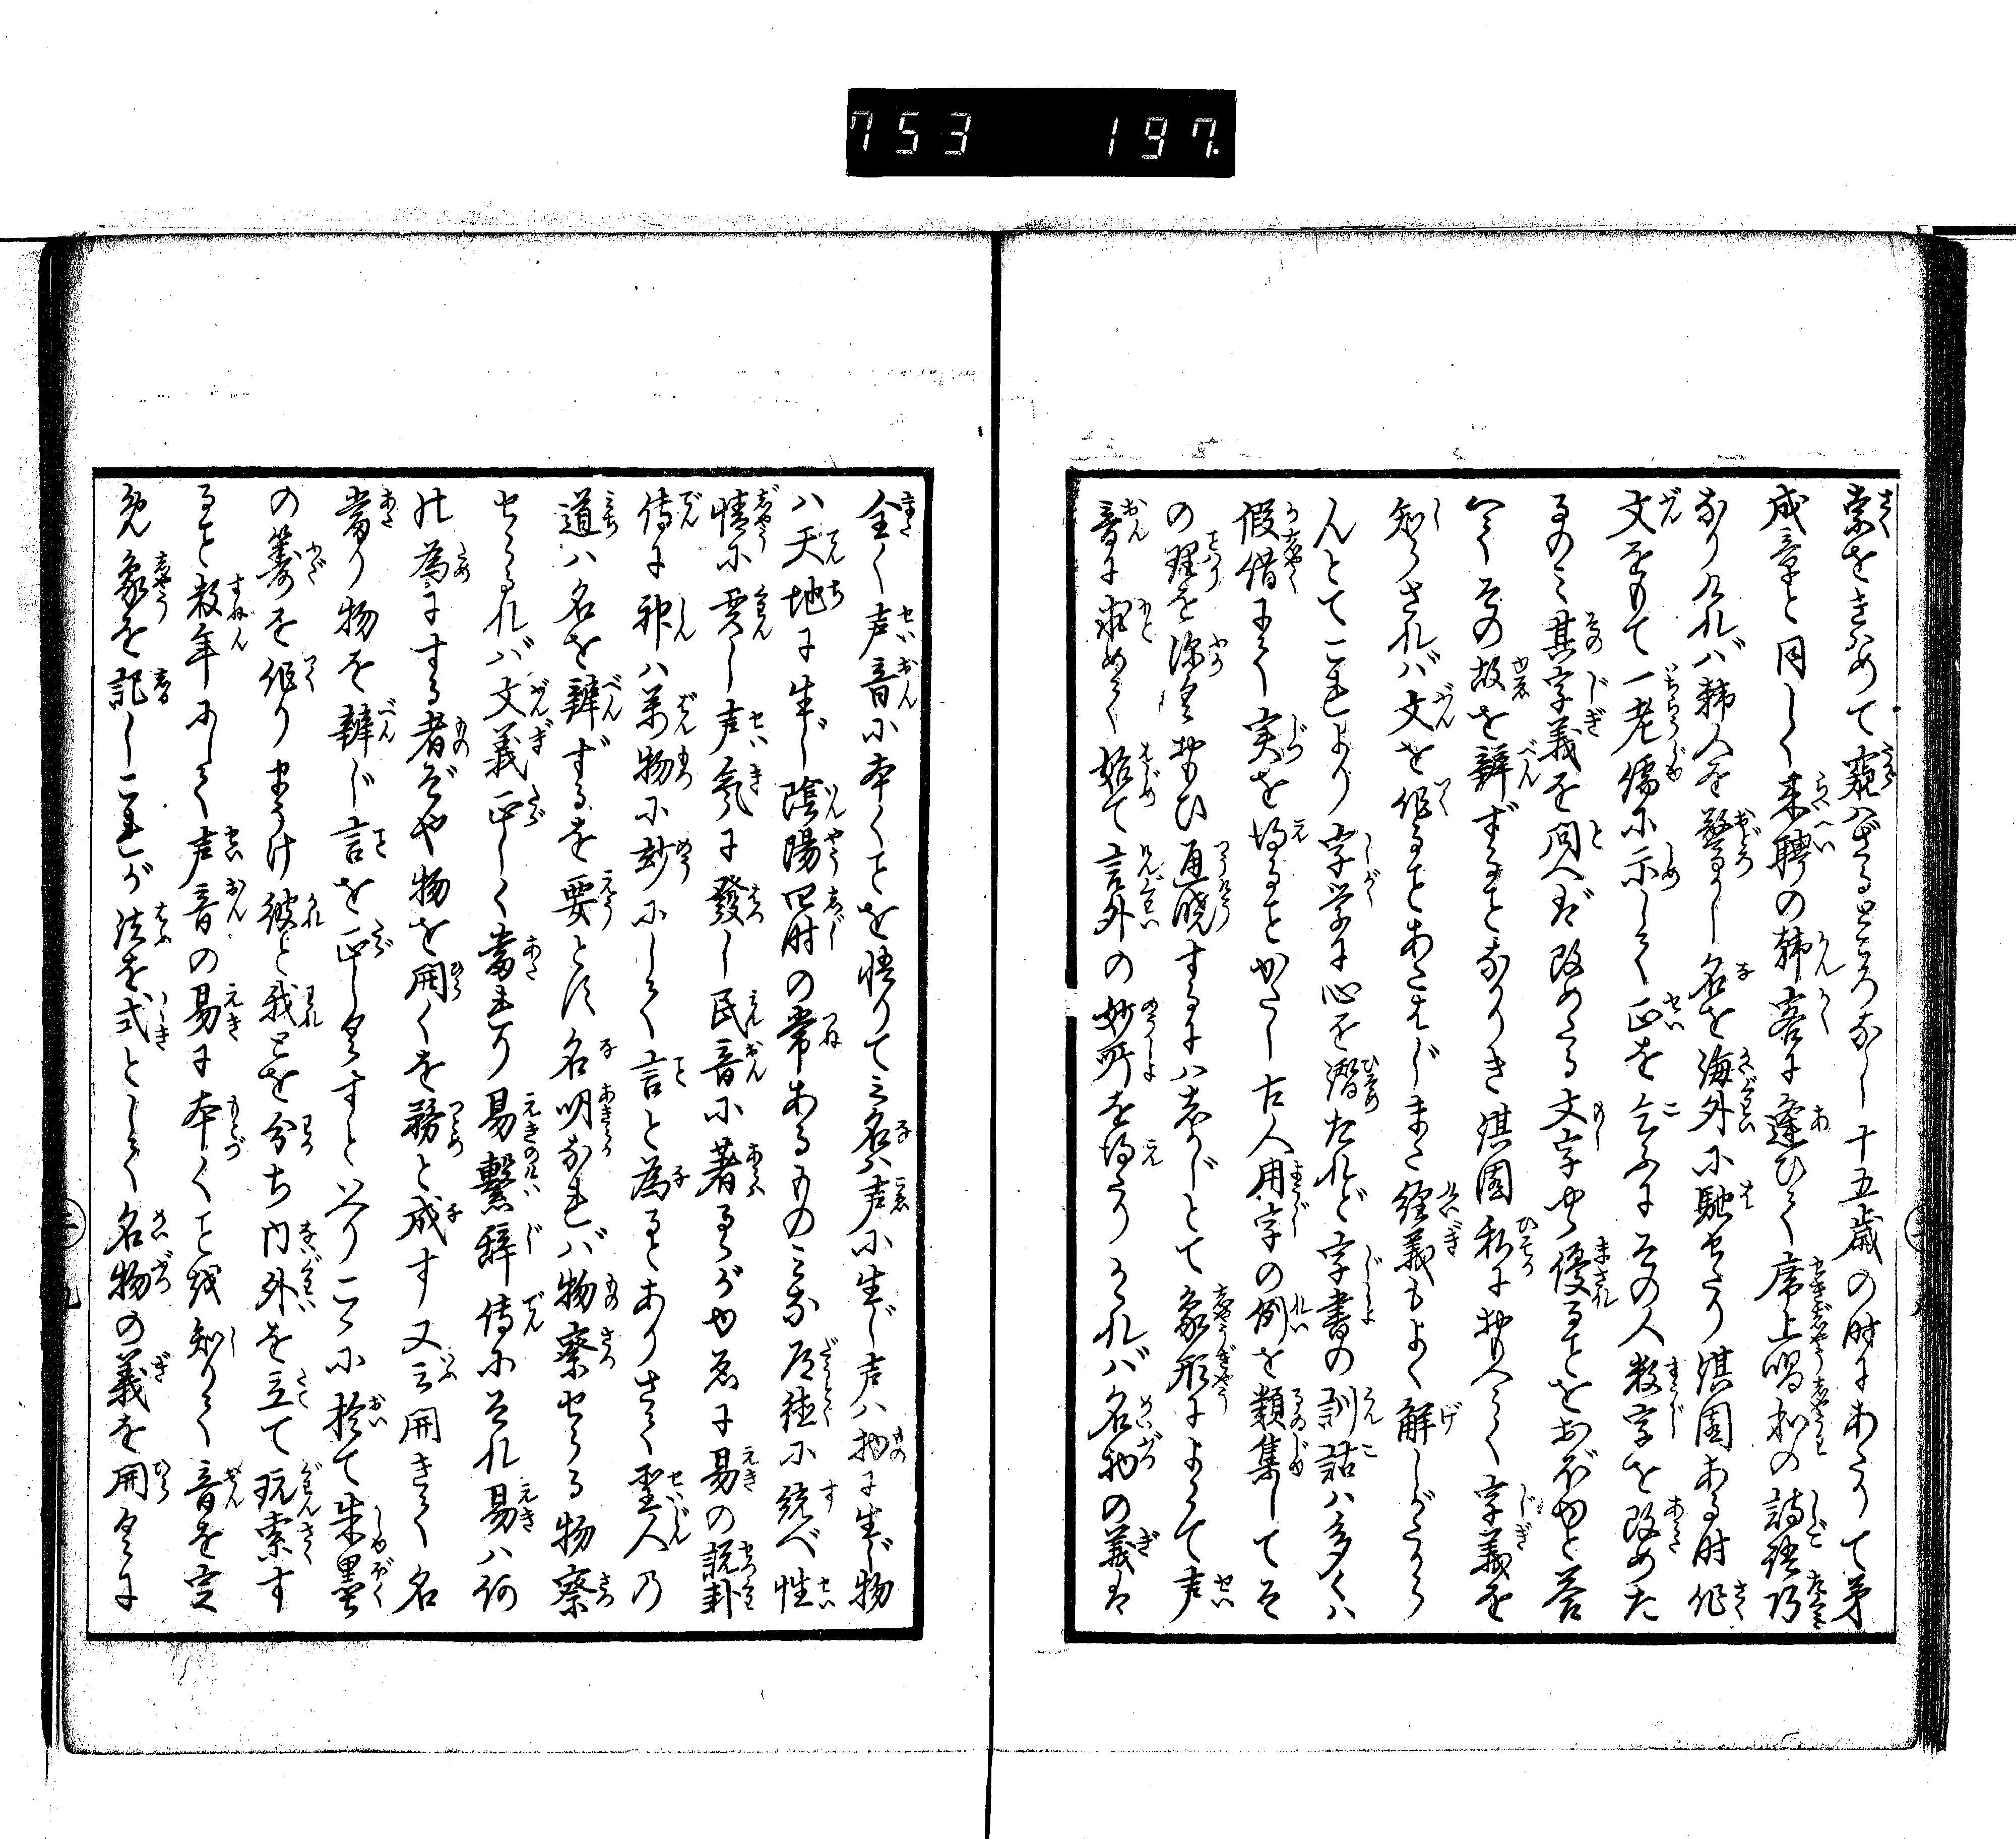 753 197
索をきはめて窺はざるところなし十五歳の時にあたりて弟
成章と同しく来聘の韓客に逢ひて席上唱和の詩律乃
なりけれバ韓人を驚かし名を海外に馳せたり淇園ある時作
文をもて一老儒に示して正を乞ふにその人数字を改めた
るのミ其字義を問へバ改めたる文字やゝ優ることをおぼゆと答
へてその故を辨ずることなかりき淇園私に おもへらく字義を
知らされバ文を作ることあたはじまた経義もよく解しがたから
んとてこれより字学に心を潜たれど字書の訓詁ハ多くハ
假借にて実を得ることかたし古人用字の例を類集してそ
の理を深くおもひ通暁するにハしかじとて象形によりて声
音に求めて始て言外の妙所を得たりけれバ名物の義は
全く声音に本くことを悟りて云名ハ声に生じ声ハ物に生じ物
ハ天地に生じ陰陽四時の常あるもの之な道徳に統べ性
情に具し声氣に發し民音に著るゝがゆゑに易の説卦
傳に神ハ萬物に妙にして言と為るとありさて聖人乃
道ハ名を辨ずるを要とす名明なれバ物察せらる物察
せらるれバ文義正しく當れり易繋辞傳にそれ易ハ何
の為にする者ぞや物を開くを務と成す又云開きて名
當り物を辨じ言を正しくすといへりこゝに於て朱墨
の籌を作りまうけ彼と我とを分ち内外を立て玩索す
ること数年にして声音の易に本くことを知りて音を定
め象を記しこれが法を式として名物の義を開くに